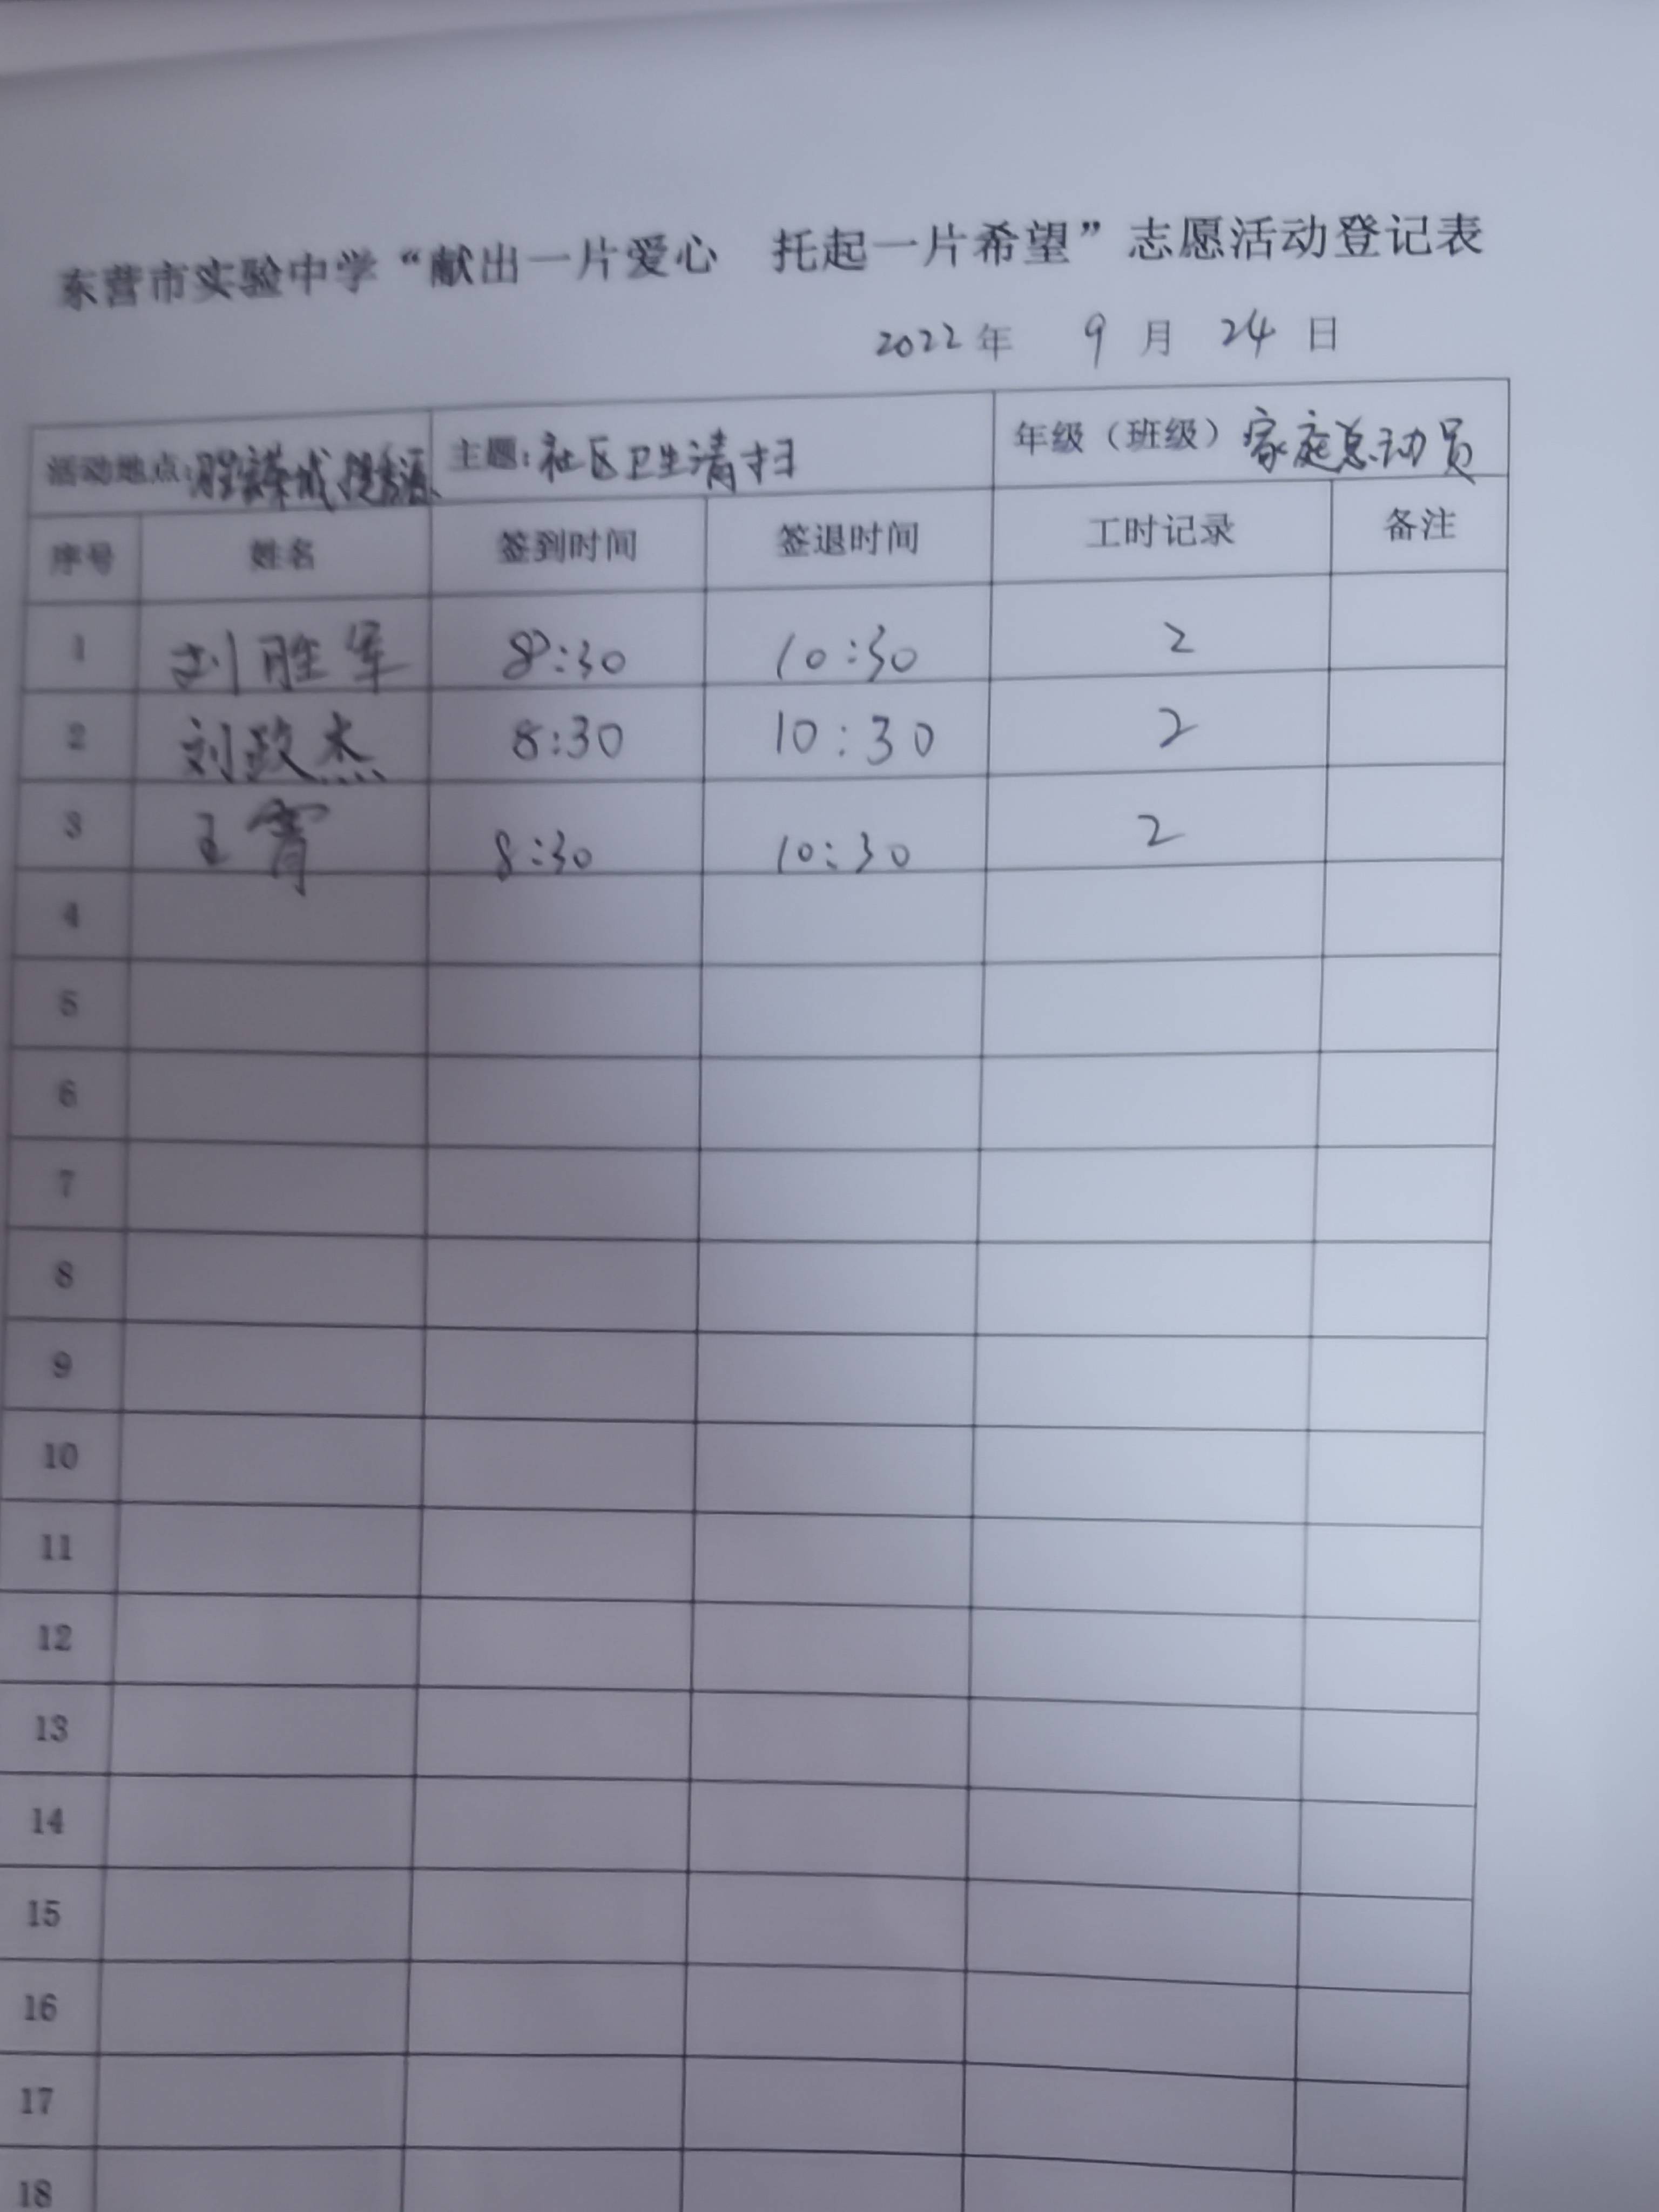 东营市实验中学“献出一片爱心 托起一片希望”志愿活动登记表
2022年 9月 24日
活动地点: 主题:社区卫生清扫 年级（班级）家庭总动员
序号 姓名 签到时间 签退时间 工时记录 备注
1 刘胜军 8:30 10:30 2
2 刘政杰 8:30 10:30 2
3 王霄 8:30 10:30 2
4
5
6
7
8
9
10
11
12
13
14
15
16
17
18